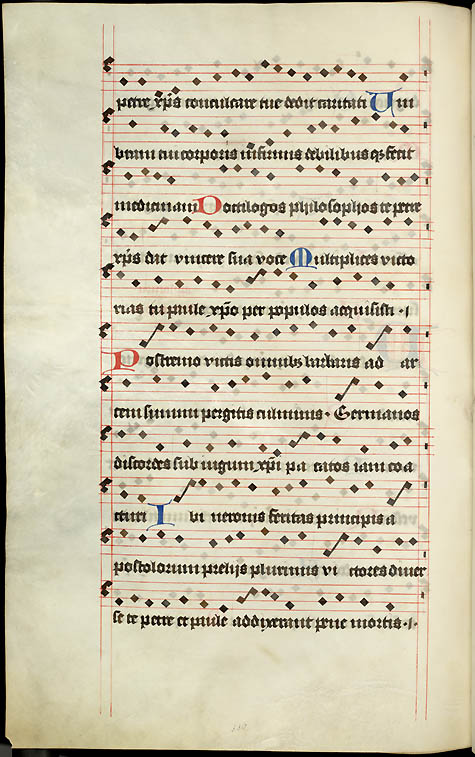 petre xp̄s conculcare tue dedit caritati Um
bram tui corporis infirmis debilibus qꝫ fecit
medicinam Doctilogos philosophos te petre
xp̄s dat vincere sua voce Multiplices victo
rias tu paule xp̄o per populos acquisisti
Postremo victis omnibꝫ barbaris ad ar
cem summi pergitis culminis Germanos
discordes sub iugum xp̄i pa catos iam co a
cturi Ibi neronis feritas principis a
postolorum prelijs plurimis vi ctores diver
se te petre et paule addixerant pene mortis